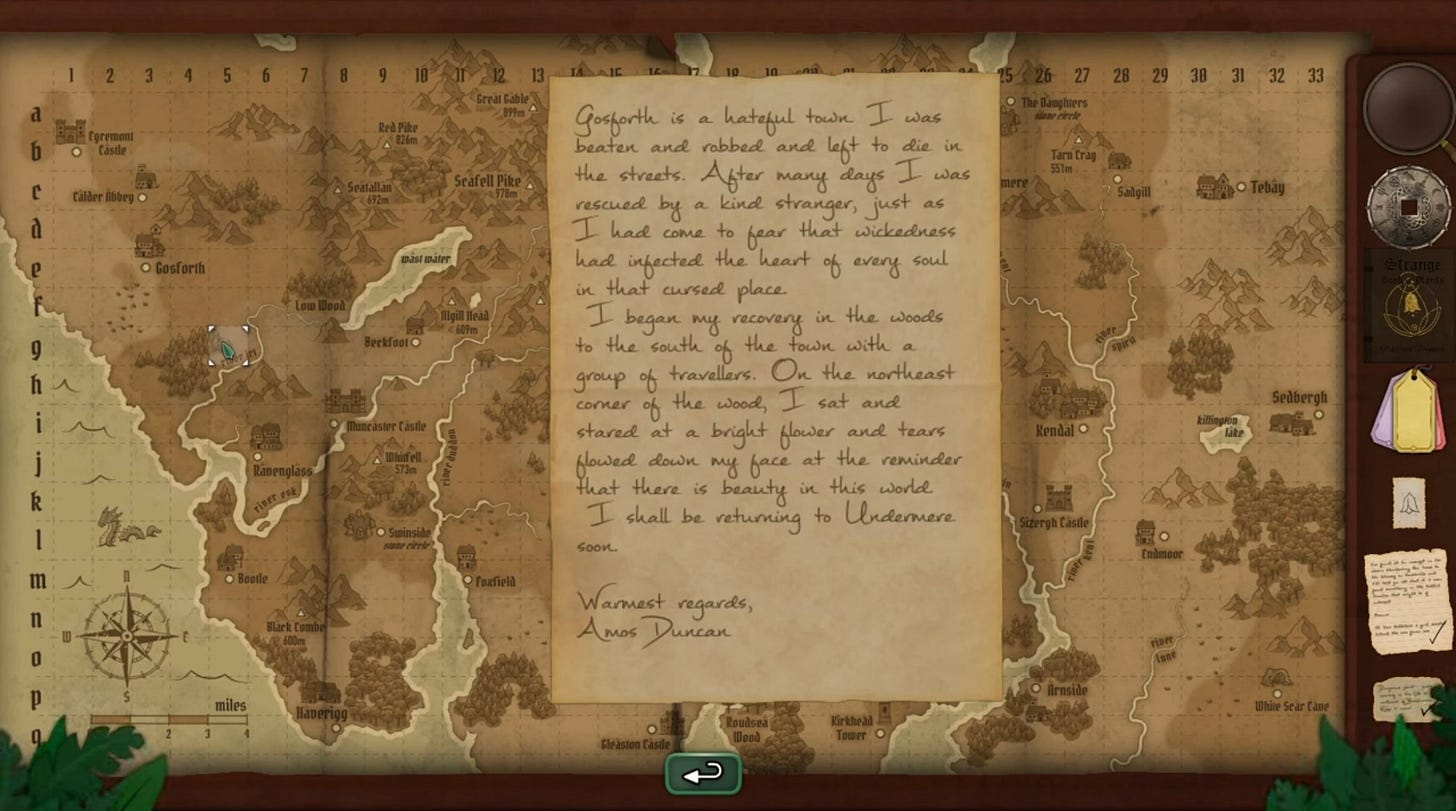 1 2 3 4 5 6 7 8 9 10 11 12 13 14 15 16 17 18 19 24 25 26 27 28 29 30 31 32 33
a
b
c
d
e
f
g
h
i
j
k
l
m
n
o
p
q
Egremont
Castle
Calder Abbey
Gosforth
Great Gable
899m
Red Pike
826m
Seatallan
692m
Scafell Pike
978m
wast water
Low Wood
Illgill Head
609m
Beckfoot
river irt
Muncaster Castle
Ravenglass
Whitfell
573m
river duddon
river esk
Swinside
stone circle
Bootle
Foxfield
Black Combe
600m
Haverigg
n
w
e
s
miles
2 3 4
Gosforth is a hateful town I was
beaten and robbed and left to die in
the streets. After many days I was
rescued by a kind stranger, just as
I had come to fear that wickedness
had infected the heart of every soul
in that cursed place.
I began my recovery in the woods
to the south of the town with a
group of travellers. On the northeast
corner of the wood, I sat and
stared at a bright flower and tears
flowed down my face at the reminder
that there is beauty in this world.
I shall be returning to Undermere
soon.
Warmest regards,
Amos Duncan
Gleaston Castle
Roudsea
Wood
Kirkhead
Tower
The Daughters
stone circle
Tarn Crag
551m
mere
Sadgill
Tebay
river
sprint
Kendal
killington
lake
Sedbergh
Sizergh Castle
Endmoor
river kent
river
lune
Arnside
White Scar Cave
Strange